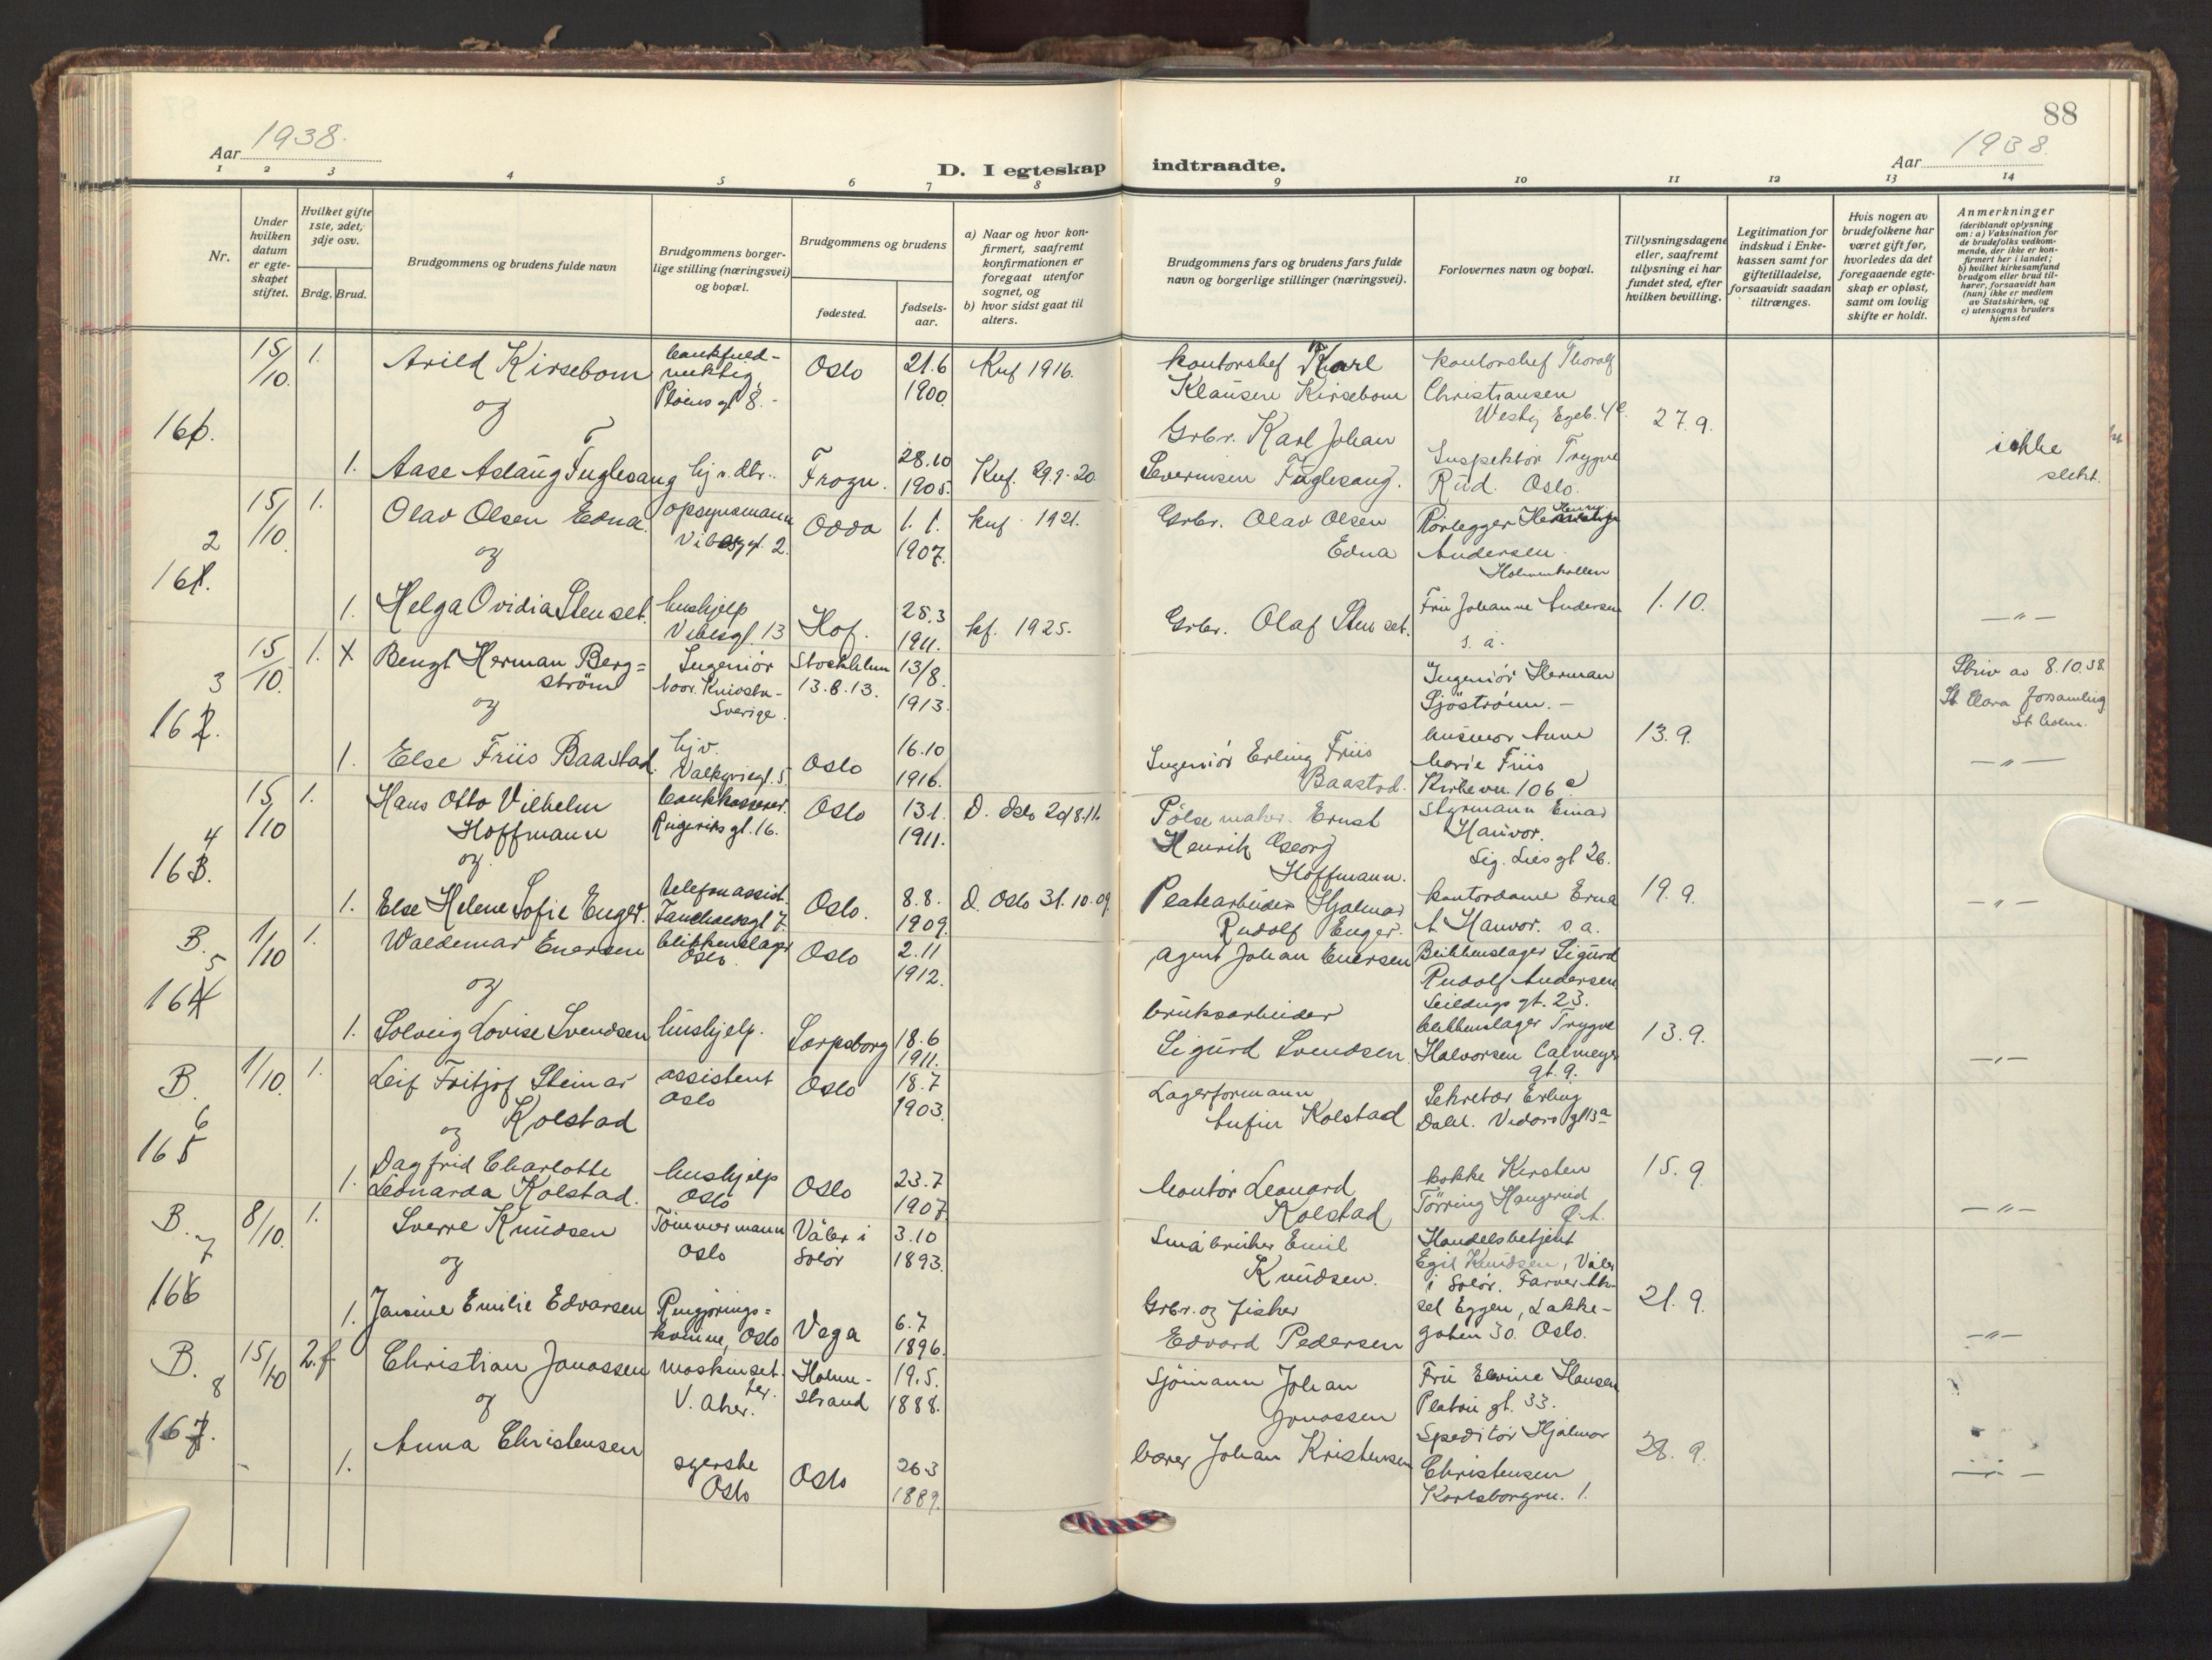 88
Aar 1938.
D. I egteskap indtraadte.
Aar 1938.
1 2 3 4 5 6 7 8 9 10 11 12 13 14
Nr.
Under hvilken datum er egte-skapet stiftet.
Hvilket gifte 1ste, 2det, 3dje osv.
Brdg. Brud.
Brudgommens og brudens fulde navn
Brudgommens borger-lige stilling (næringsvei) og bopæl.
Brudgommens og brudens
fødested.
fødsels-aar.
a) Naar og hvor kon-firmert, saafremt konfirmationen er foregaat utenfor sognet, og
b) hvor sidst gaat til alters.
Brudgommens fars og brudens fars fulde navn og borgerlige stillinger (næringsvei).
Forlovernes navn og bopæl.
Tillysningsdagene eller, saafremt tillysning ei har fundet sted, efter hvilken bevilling.
Legitimation for indskud i Enke-kassen samt for giftetilladelse, forsaavidt saadan tiltrænges.
Hvis nogen av brudefolkene har været gift før, hvorledes da det foregaaende egte-skap er opløst, samt om lovlig skifte er holdt.
Anmerkninger
(deriblandt oplysning om: a) Vaksination for de brudefolks vedkom-mende, der ikke er kon-firmert her i landet; b) hvilket kirkesamfund brudgom eller brud til-hører, forsaavidt han (hun) ikke er medlem av Statskirken, og c) utensogns bruders hjemsted
15/10. 1. Arild Kirsebom
Ploens gt 8.-
Oslo 21.6 1900. Knf 1916.
kontorshef Karl Klausen Kirsebom
kontorshef Thoralf Christiansen
og
27.9.
1. Aase Aslaug Fuglesang hj v. dtr. Frogn. 28.10 1905. Knf. 29.9-20.
Grbr. Karl Johan Severinsen Fuglesang.
Inspektør Trygve Rud. Oslo.
ikke slekt.
15/10. 1. Olav Olsen Edna. opsynsmann
Odda 1.1. 1907. knf 1921.
Grbr. Olav Olsen Edna
Rørlegger Henry Andersen
Holmenkollen
2
og
1. Helga Ovidia Stenset. hushjelp
Vibesgt. 13 Hof. 1911. kf. 1925.
Grbr. Olaf Stenset.
Fru Johanne Andersen
s. a.
1.10.
— " —
15/10. 1. X Bengt Herman Berg=strøm
Ingeniør
Sverige.
Stockholm 13.8.13. 13/8 1913.
Ingeniør Herman Sjöström.-
Skriv av 8.10.38. St Clara forsamling St.holm.
3
162.
og
1. Else Friis Baastad. hjv. Valkyriegt. 5 Oslo 16.10 1916.
Ingeniør Erling Friis Baastad.
husmor Anne Marie Friis
Kirkevn. 106 a
13.9.
— " —
15/10 1. Hans Otto Vilhelm Hoffmann
bankkasserer. Ringeriks gt. 16.
Oslo 13.1. 1911.
Pølsemaker Ernst Henrik Georg Hoffmann.
Styrmann Einar Hanvor.
4
163.
og
1. Else Helene Sofie Enger. telefonassist.
Oslo. 8.8. 1909. D. Oslo 31.10.09.
Hjalmar Rudolf Enger.
kontordame Erna
Hanvor. s.a.
19.9.
— " —
B. 1/10 1. Waldemar Enersen blikkenslager Oslo Oslo 2.11 1912.
Agent Johan Enersen
Blikkenslager Sigurd Rudolf Andersen
Seildugs gt. 23.
5
og
1. Solveig Lovise Svendsen hushjelp. Sarpsborg 18.6 1911.
bruksarbeider Sigurd Svendsen.
blikkenslager Trygve Halvorsen Calmeyer gt. 9.
13.9.
— " —
B. 1/10. 1. Leif Fritjof Steinar Kolstad
assistent Oslo Oslo 18.7 1903.
Lagerformann
Kolstad
Sekretær Erling Dahl. Vidars gt 13 a
6
165
og
1. Dagfrid Charlotte Leonarda Kolstad.
hushjelp Oslo Oslo 23.7 1907.
Leonard Kolstad
kokke Kirsten Tørring Haugerud
15.9
— " —
B. 8/10. 1. Sverre Knudsen Tømmermann Oslo Våler i Solør 3.10 1893.
Småbruker Emil Knudsen.
Handelsbetjent Egil Knudsen, Våler i Solør.
7
166
og
1. Jansine Emilie Edvarsen Rengjørings=kvinne, Oslo Vega 6.7 1896.
Grbr. og fisker Edvard Pedersen
Eggen, Lakke-gaten 30. Oslo.
21.9.
— " —
B. 15/10 2. f Christian Jonassen
V. Aker. Holme-strand 19.5. 1888.
Sjømann Johan Jonassen
Fru Elvine Hansen
Platou gt. 33.
8
167.
og
1. Anna Christensen syerske Oslo Oslo 26.3 1889.
Johan Kristensen
Speditør Hjalmar Christensen
Karlsborgvn. 1.
28.9.
— " —